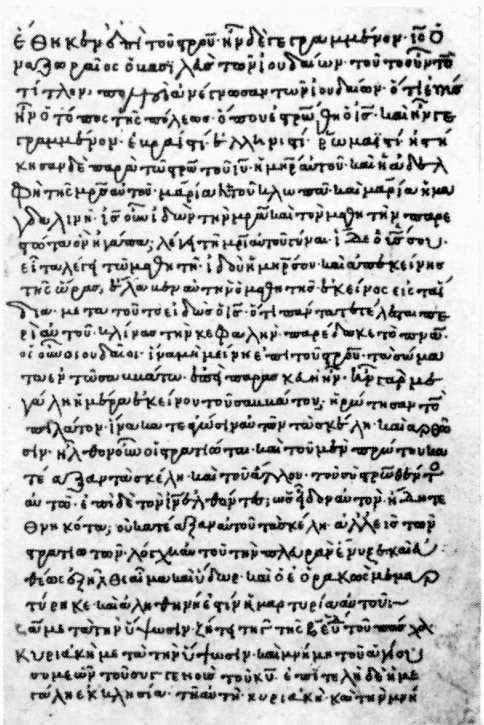 ἔθηκεν ἐπὶ τοῦ στρου· ἦν δὲ γεγραμμένον· ἰσ ὁ
ναζωραῖος ὁ βασιλεὺς τῶν ἰουδαίων· τοῦτον οὖν τὸν
τίτλον, πολλοὶ ἀνέγνωσαν τῶν ἰουδαίων· ὅτι ἐγγὺς
ἦν ὁ τόπος τῆς πόλεως· ὅπου ἐστρώθη ὁ ἰσ· καὶ ἦν γε
γραμμένον· ἑβραϊστί· ἑλληνιστί· ῥωμαϊστί· εἱστή
κησαν δὲ παρὰ τῶ στρω τοῦ ἰυ ἡ μηρ αὐτοῦ· καὶ ἡ ἀδελ
φὴ τῆς μρσ αὐτοῦ· μαρία ἡ τοῦ κλωπᾶ· καὶ μαρία ἡ μα
γδαλινή· ἰσ οὖν ἰδὼν τὴν μρα καὶ τὸν μαθητὴν παρε
στῶτα ὃν ἠγάπα; λέγει τῆ μρι αὐτοῦ γύναι· ἴδε ὁ υσ σου·
εἶτα λέγει τῶ μαθητῆ· ἰδοὺ ἡ μηρ σου· καὶ ἀπ' ἐκείνης
τῆς ὥρας, ἔλαβεν αὐτὴν ὁ μαθητὴς ἐκεῖνος εἰς τὰ ἴ
δια· μετὰ τοῦτο εἰδὼς ὁ ἰσ· ὅτι πάντα τετέλεσται πε
ρὶ αὐτοῦ· κλίνας τὴν κεφαλὴν παρέδωκε τὸ πνα·
οἱ οὖν ἰουδαῖοι· ἵνα μὴ μείνη ἐπὶ τοῦ στρου· τὰ σώμα
τα ἐν τῶ σαββάτω· ἐπεὶ παρασκευὴ ἦν· ἦν γὰρ με
γάλη ἡ ἡμέρα ἐκείνου τοῦ σαββάτου, ἠρώτησαν τὸν
πιλάτον· ἵνα κατεαγῶσιν αὐτῶν τὰ σκέλη· καὶ ἀρθῶ
σιν· ἦλθον οὖν οἱ στρατιῶται· καὶ τοῦ μὲν πρώτου κα
τέαξαν τὰ σκέλη· καὶ τοῦ ἄλλου· τοῦ συστρωθέντος
αὐτῶ· ἐπὶ δὲ τὸν ἰν ἐλθόντες; ὡς εἶδον αὐτὸν ἤδη τε
θνηκότα; οὐ κατέαξαν αὐτοῦ τὰ σκέλη· ἀλλ' εἷς τῶν
στρατιωτῶν· λόγχη αὐτοῦ τὴν πλευρὰν ἔνυξε· καὶ εὐ
θέως ἐξῆλθεν αἷμα καὶ ὕδωρ· καὶ ὁ ἑορακὼς μεμαρ
τύρηκε· καὶ ἀληθινή ἐστιν ἡ μαρτυρία αὐτοῦ:–
μετὰ τὴν ὕψωσιν· ζήτει τῆς τοῦ
Κυριακῆ μετὰ τὴν ὕψωσιν· καὶ μνήμη τοῦ ἁγίου
συμεὼν τοῦ συγγενοῦς τοῦ κυ· ἐπιτελῆ δὲ ἡ με
γάλη ἐκκλησία· τῆ αὐτῆ κυριακῆ· καὶ τὴν μνή